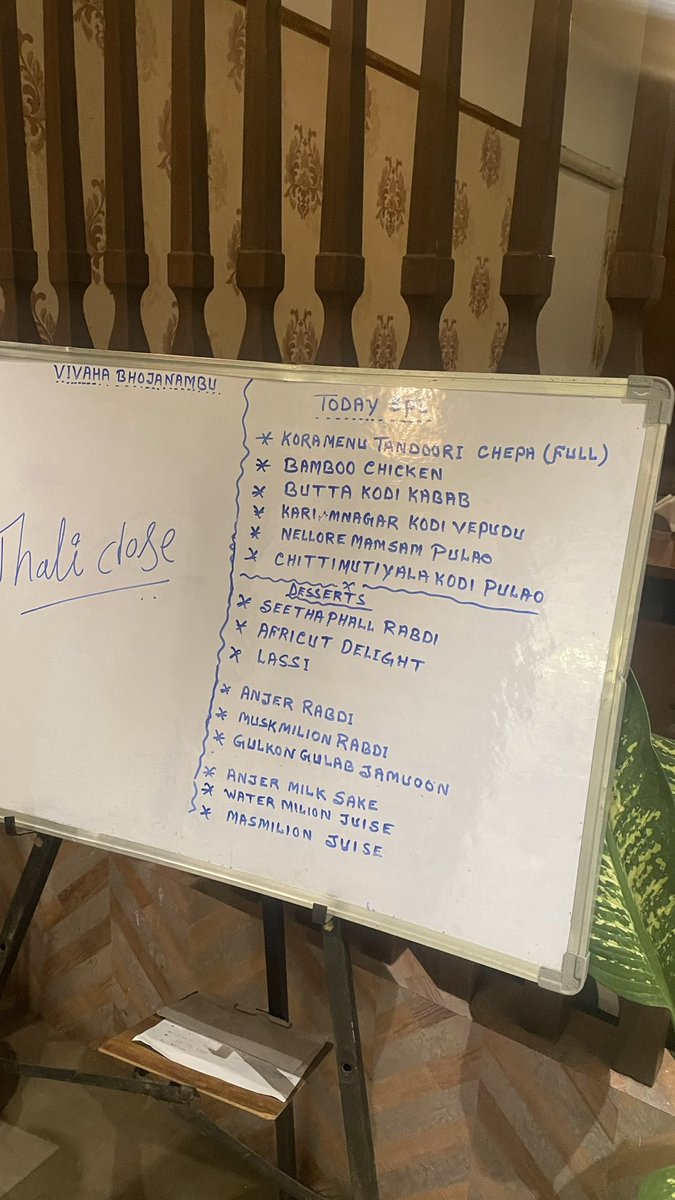 VIVAHA BHOJANAMBU
Thali close
TODAY SFL
* KORAMENU TANDOORI CHEPA (FULL)
* BAMBOO CHICKEN
* BUTTA KODI KABAB
* KARIMNAGAR KODI VEPUDU
* NELLORE MAMSAM PULAO
* CHITTIMUTIYALA KODI PULAO
DESSERTS
* SEETHAPHALL RABDI
* AFRICUT DELIGHT
* LASSI
* ANJER RABDI
* MUSKMILION RABDI
* GULKON GULAB JAMUOON
* ANJER MILK SAKE
* WATER MILION JUISE
* MASMILION JUISE